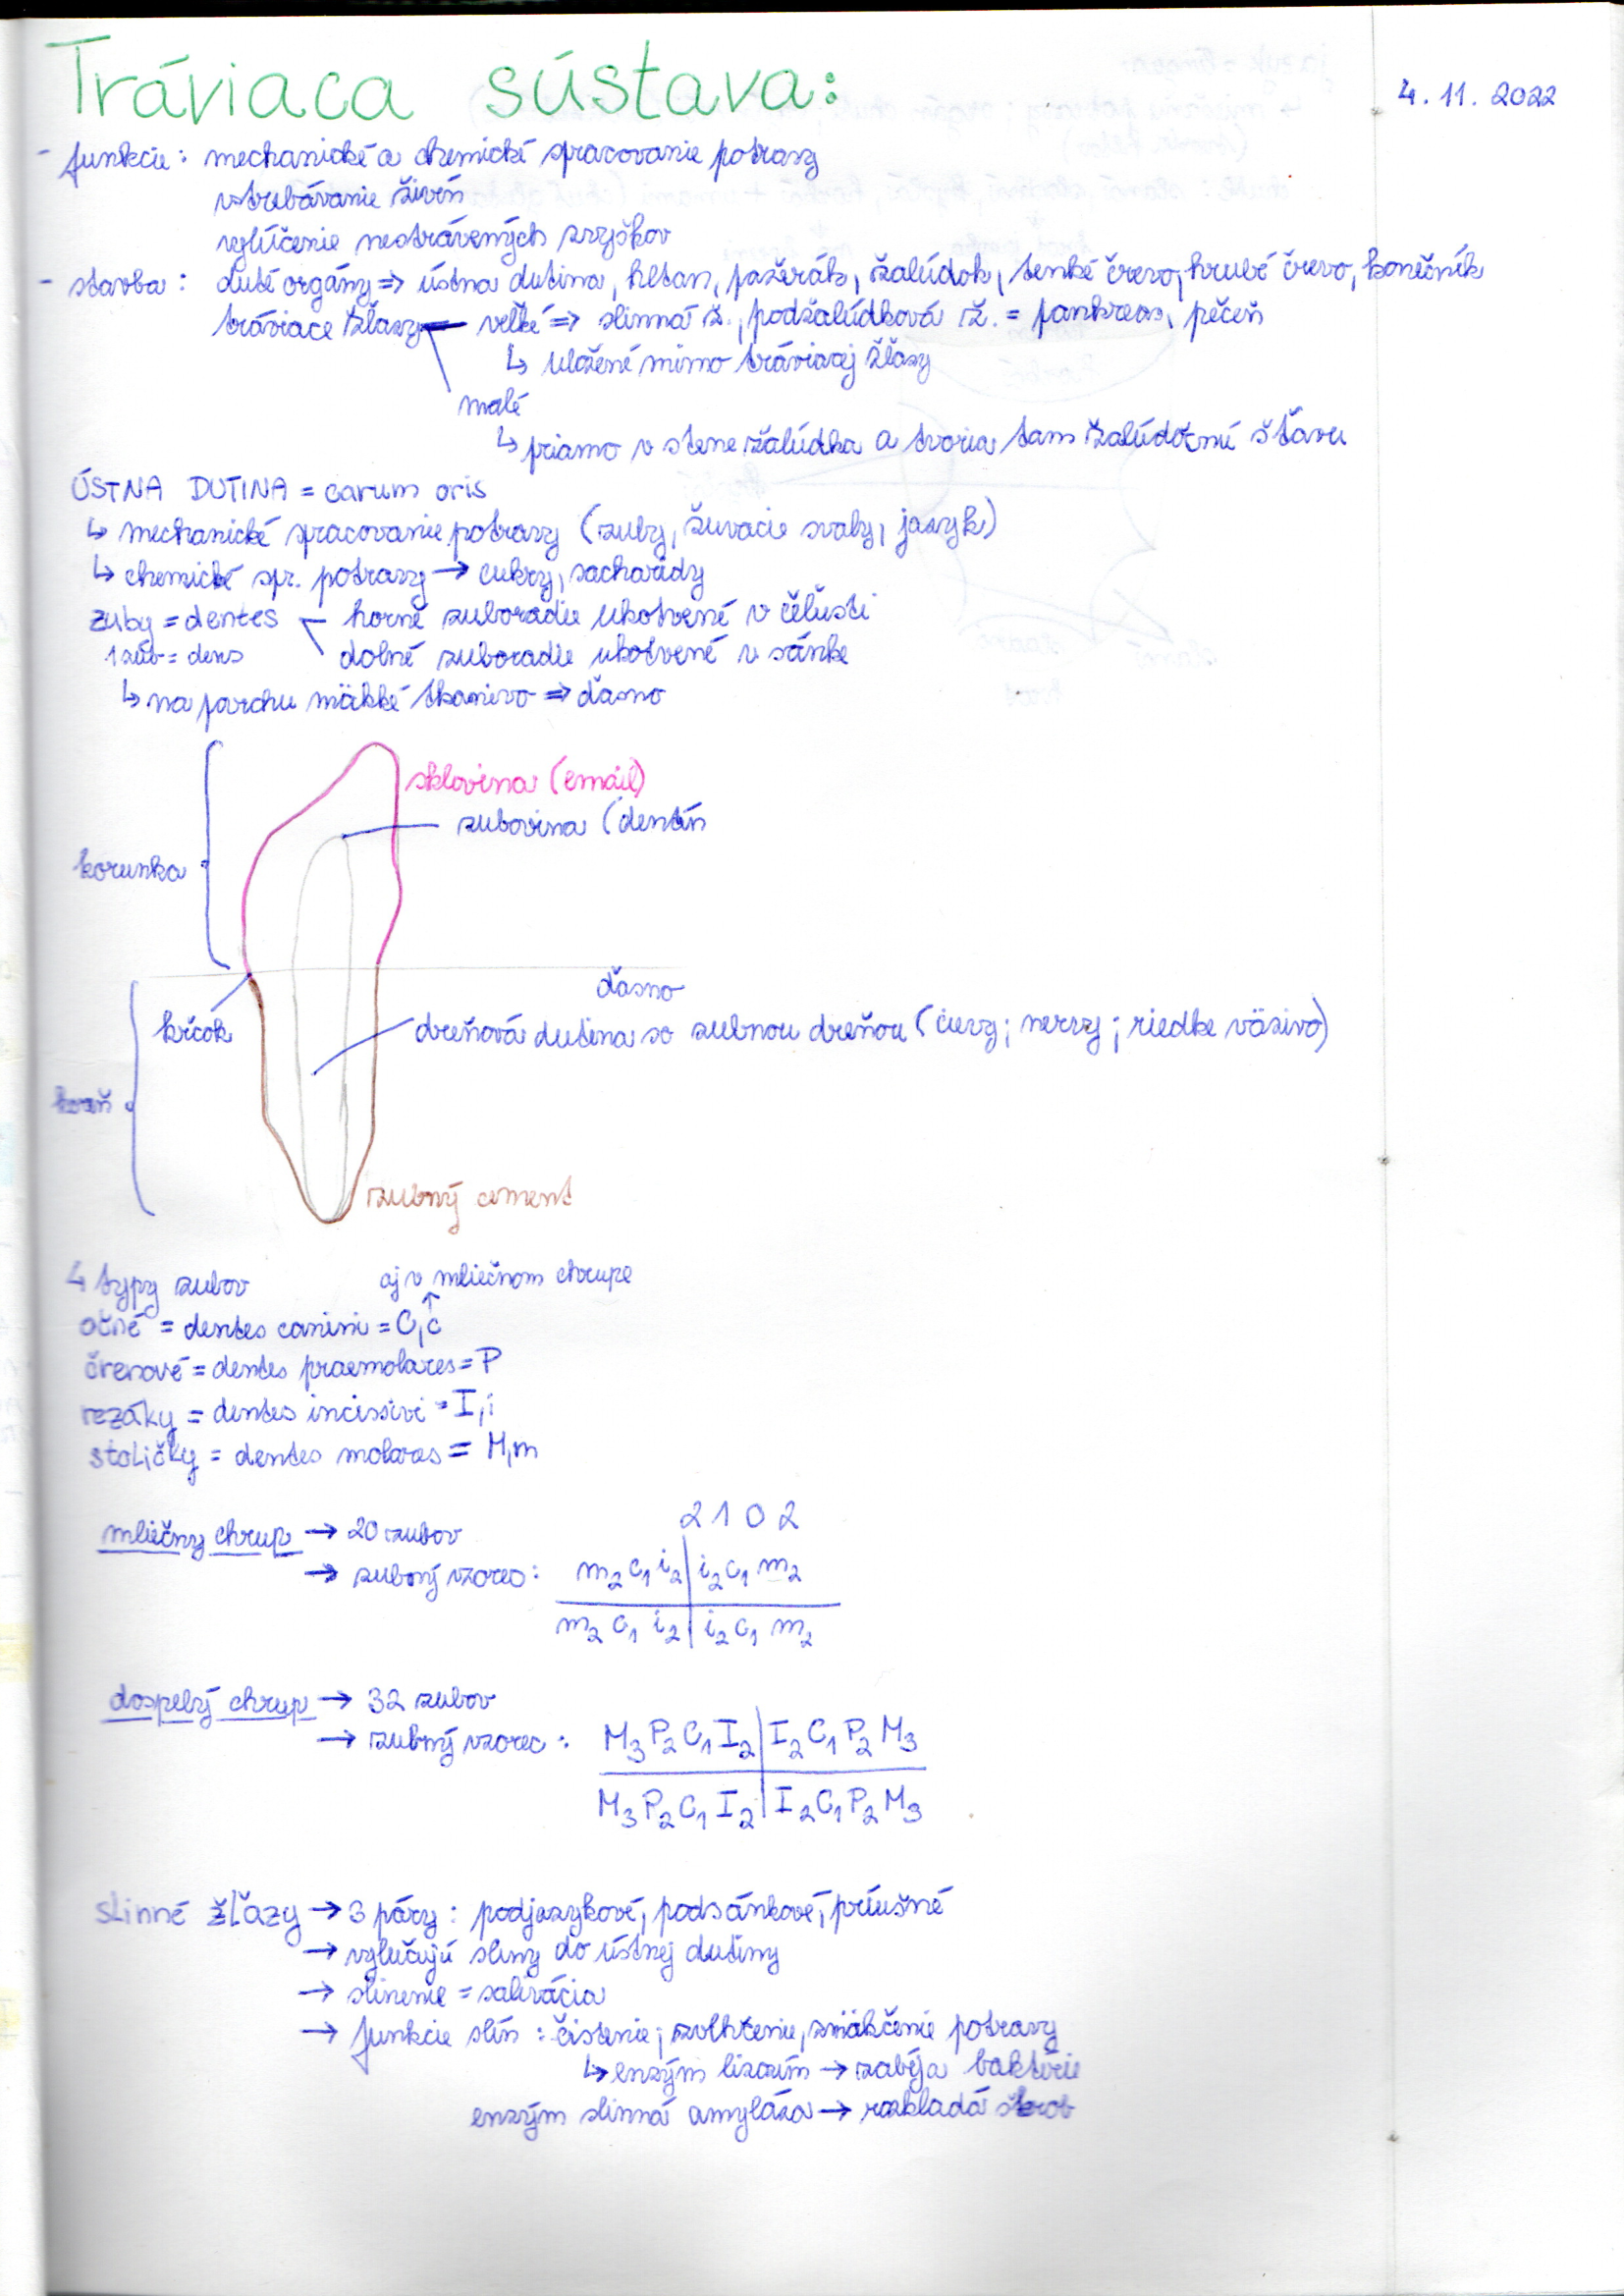 Tráviaca sústava:
4. 11. 2022
- funkcie: mechanické a chemické spracovanie potravy
vstrebávanie živín
vylúčenie nestrávených zvyškov
- stavba: duté orgány => ústna dutina, hltan, pažerák, žalúdok, tenké črevo, hrubé črevo, konečník
tráviace žľazy veľké => slinná ž., podžalúdková ž. = pankreas, pečeň
↳ uložené mimo tráviacej žľazy
malé
↳ priamo v stene žalúdka a tvoria tam žalúdočnú šťavu
ÚSTNA DUTINA = carum oris
↳ mechanické spracovanie potravy (zuby, žuvacie svaly, jazyk)
↳ chemické spr. potravy → cukry, sacharidy
zuby = dentes horné zuboradie ukotvené v čeľusti
1 zub = dens dolné zuboradie ukotvené v sánke
↳ na povrchu mäkké tkanivo => ďasno
sklovina (email)
zubovina (dentín
korunka
ďasno
kŕčok
dreňová dutina so zubnou dreňou (cievy; nervy; riedke väzivo)
koreň
zubný cement
4 typy zubov aj v mliečnom chrupe
očné = dentes canini = C, c
črenové = dentes praemolares = P
rezáky = dentes incissivi = I, i
stoličky = dentes molares = M, m
2 1 0 2
mliečny chrup → 20 zubov
→ zubný vzorec: m₂ c₁ i₂ | i₂ c₁ m₂
m₂ c₁ i₂ | i₂ c₁ m₂
dospelý chrup → 32 zubov
→ zubný vzorec: M₃ P₂ C₁ I₂ | I₂ C₁ P₂ M₃
M₃ P₂ C₁ I₂ | I₂ C₁ P₂ M₃
slinné žľazy → 3 páry: podjazykové, podsánkové, príušné
→ vylučujú sliny do ústnej dutiny
→ slinenie = salivácia
→ funkcie slín: čistenie; zvlhčenie, zmäkčenie potravy
↳ enzým lizozím → zabíja baktérie
enzým slinná amyláza → rozkladá škrob